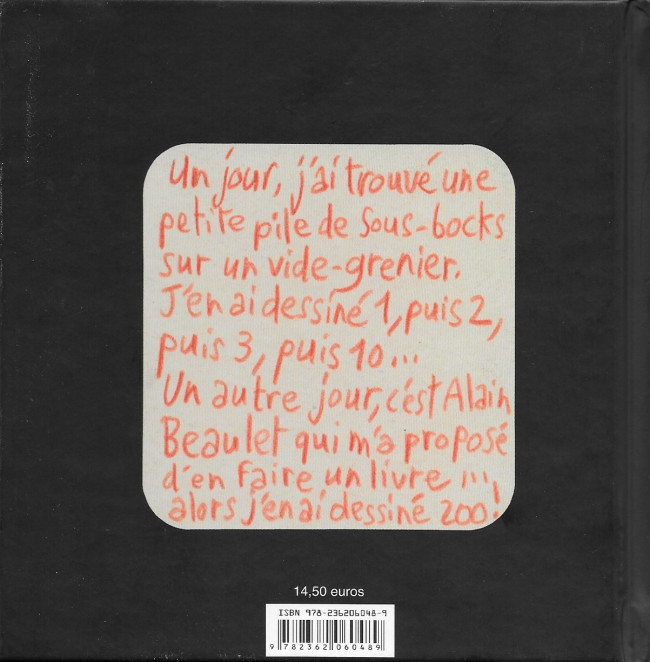 Un jour, j'ai trouvé une
petite pile de sous-bocks
sur un vide-grenier.
J'en ai dessiné 1, puis 2,
puis 3, puis 10...
Un autre jour, c'est Alain
Beaulet qui m'a proposé
d'en faire un livre ...,
alors j'en ai dessiné 200!
14,50 euros
ISBN 978-236206048-9
9 782362 060489